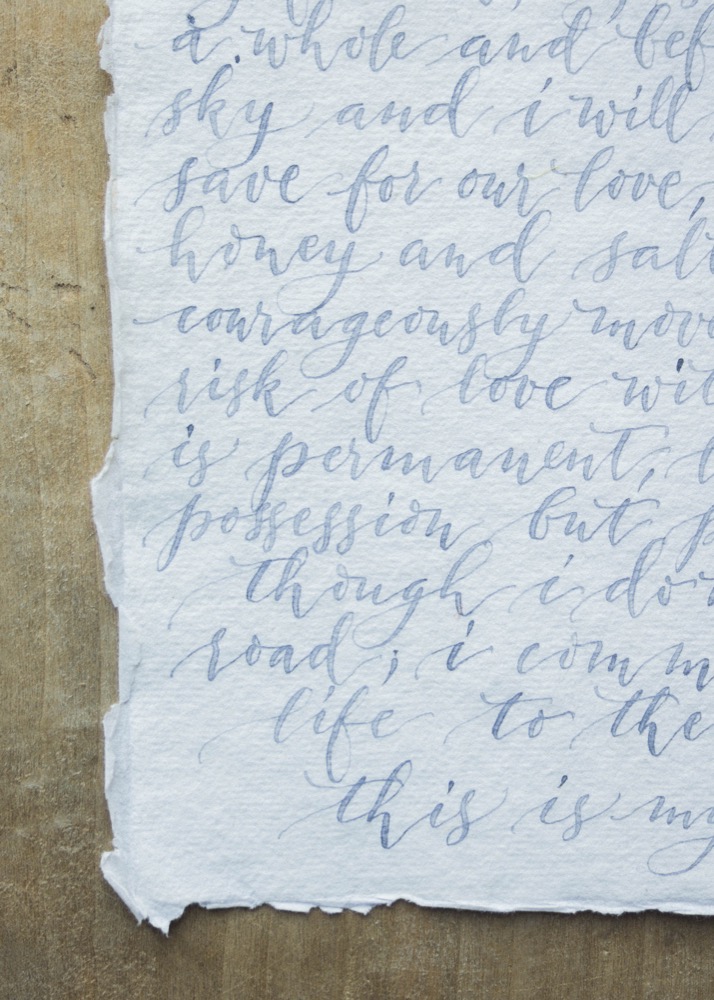 a whole and bef
sky and i will
save for our love,
honey and salt
courageously move
risk of love wil
is permanent,
possession but p
though i don
road; i comm
life to the
this is my